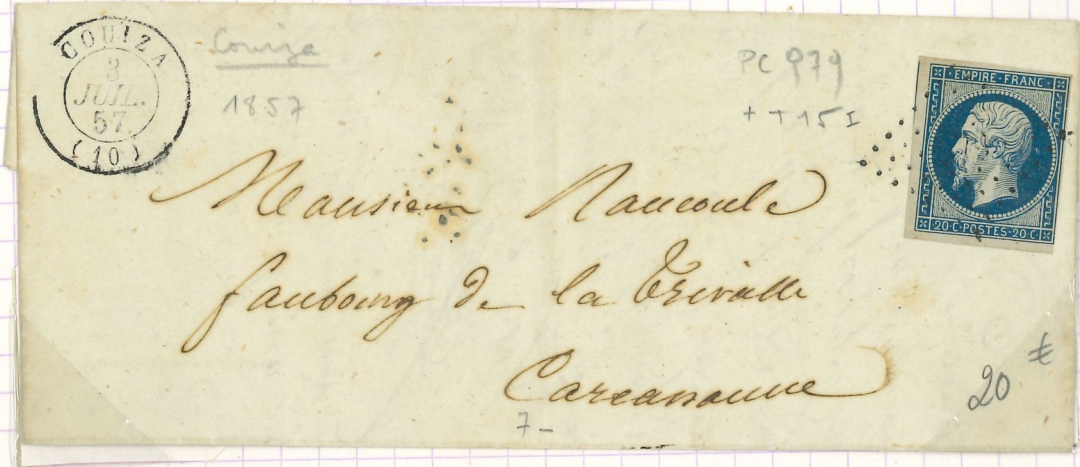 COUIZA
3
JUIL.
57
(10)
Couiza
1857
PC 979
+ T 15 I
EMPIRE FRANC
20·C·POSTES·20·C
Monsieur Naucoule
faubourg de la Trivalle
Carcassonne
20
7-